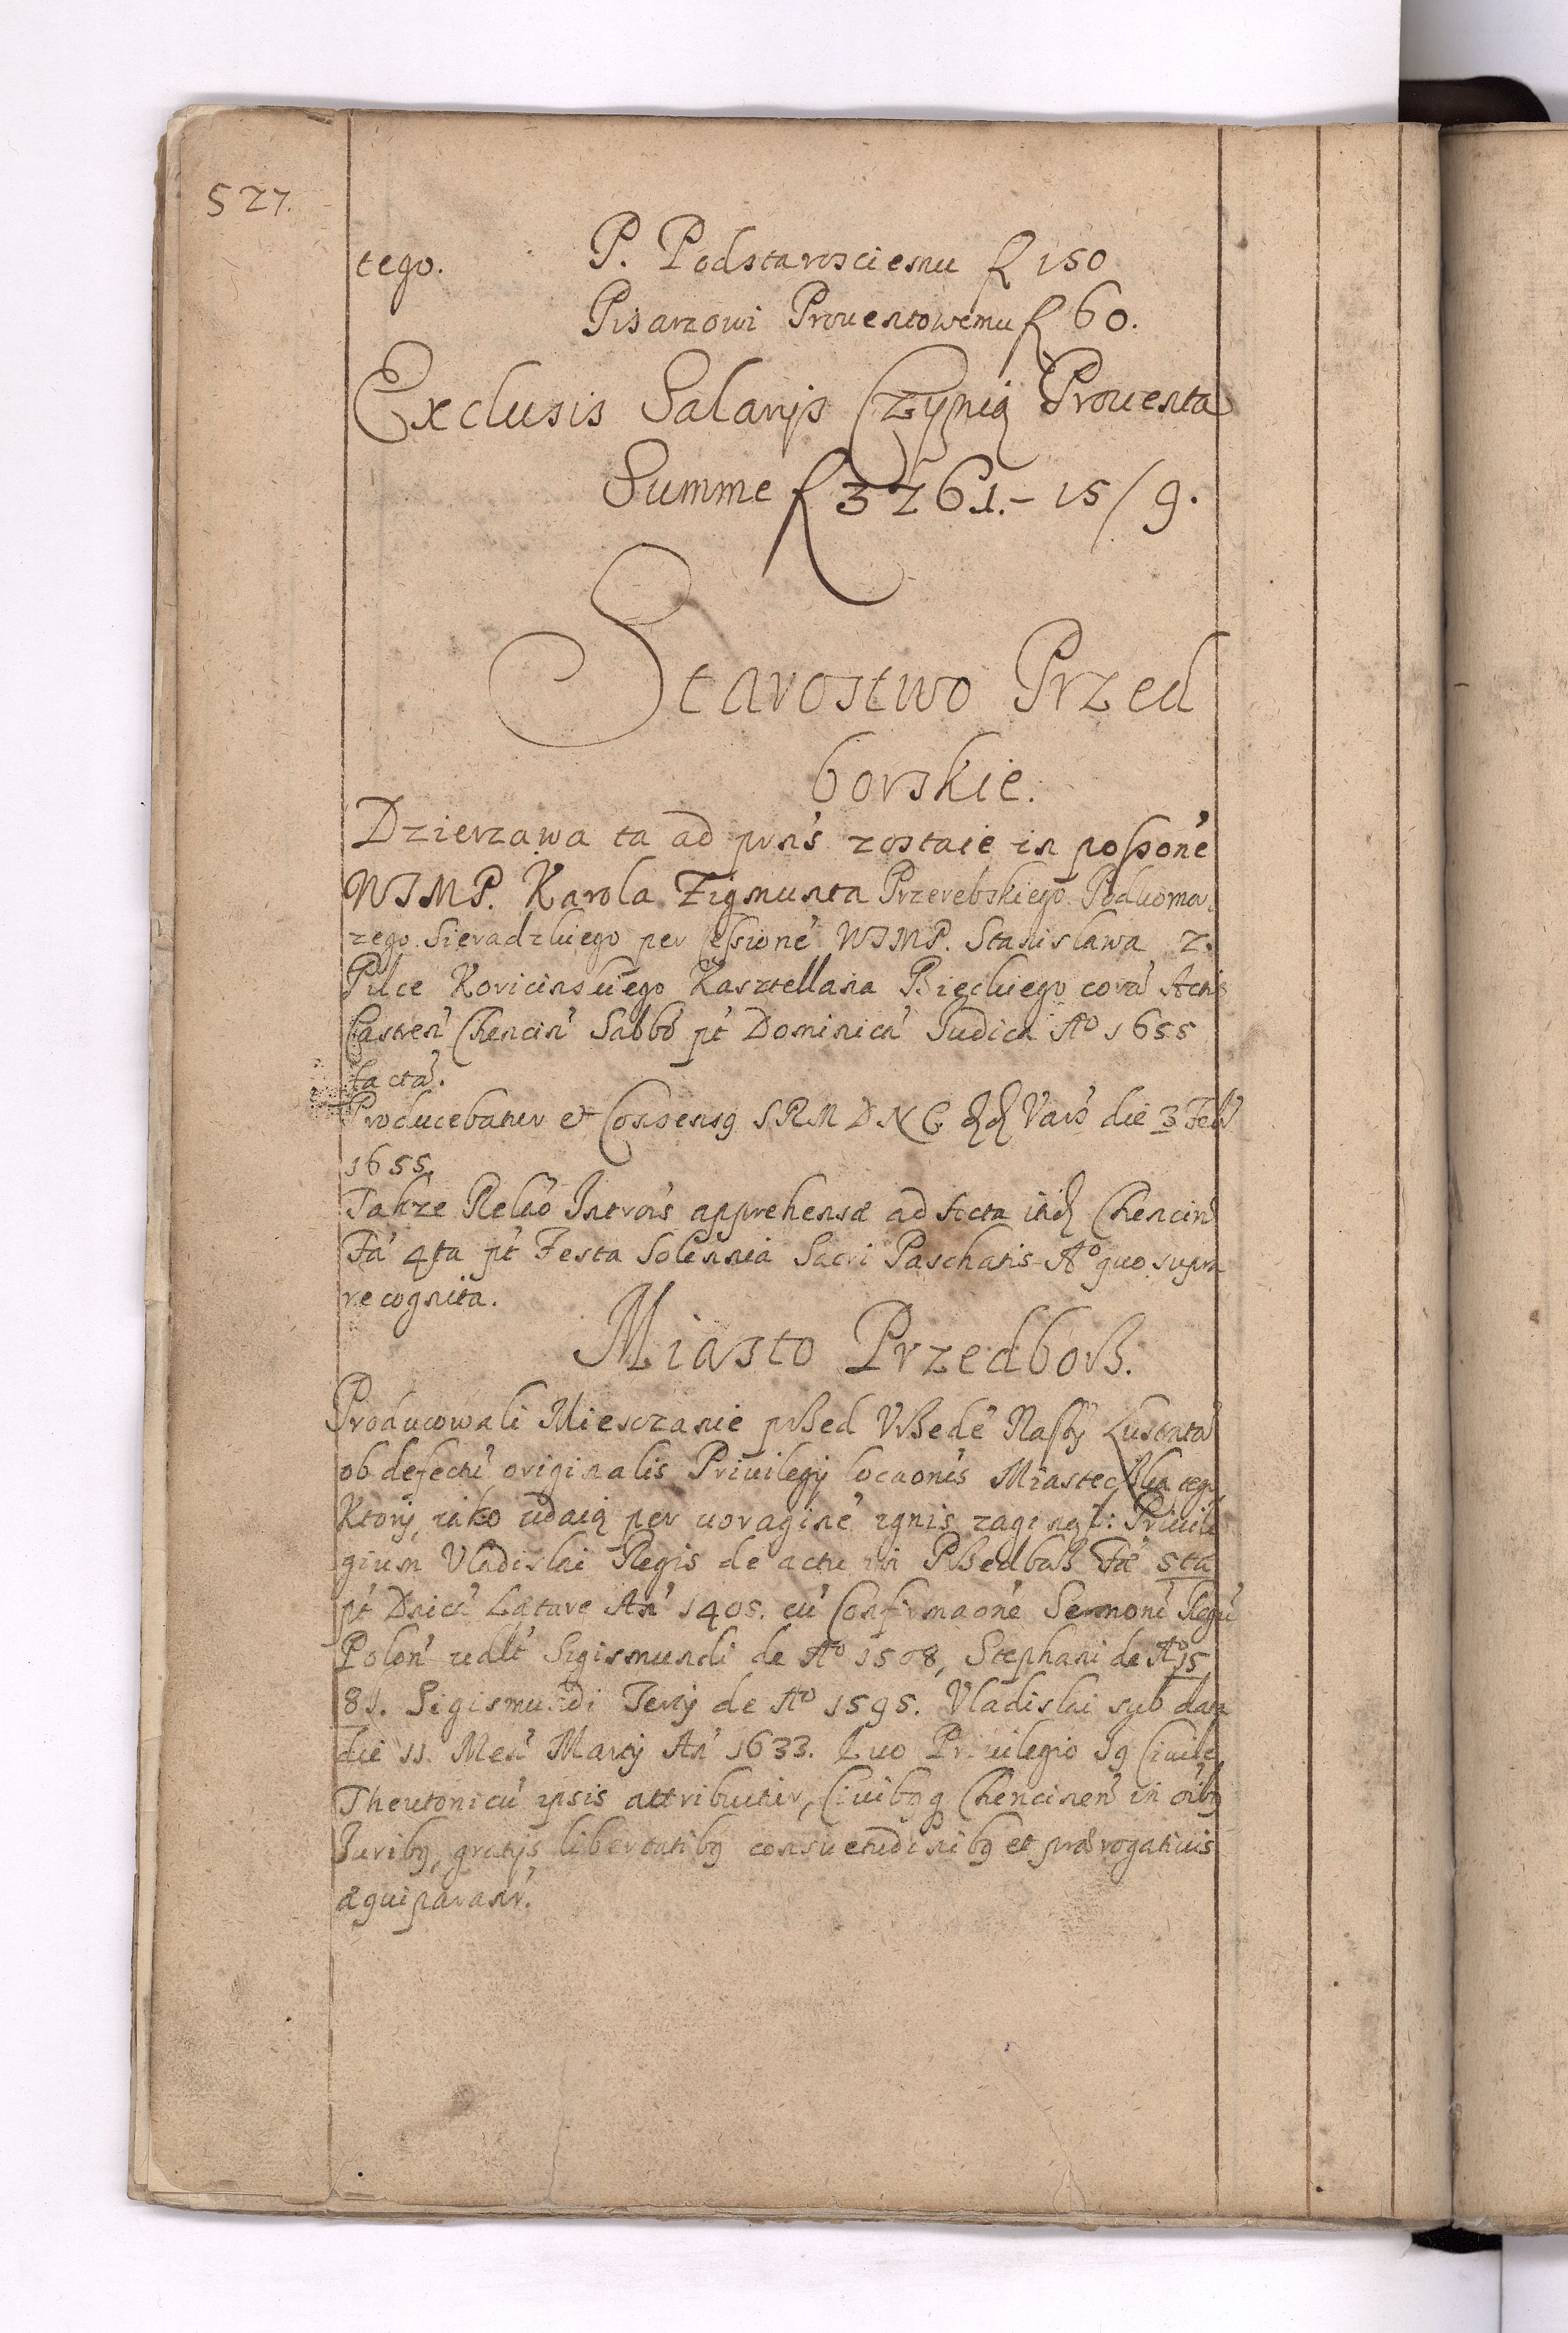 527.
tego. P. Podstarosciemu f 150
Pisarzowi Prouentowemu f 60.
Exclusis Salarijs Czynią Prouenta
Summe f 3761.- 15/9.
Starostwo Przed
borskie.
Dzierzawa ta ad prns zostaie in possone
WJMP. Karola Zigmunta Przerebskiego Podkomo
rzego Sieradzkiego per Cessione WJMP. Stanislawa z.
Pilce Koricinskiego Kasztellana Bieckiego cora Actis
Castren Chencin Sabbo pt Dominica Judica Ao 1655
facta.
Producebatur et Consensq SRM D N C Vars die 3 Feb
1655.
Takze Relao Introis apprehensæ ad Acta Chencin
Fa 4ta pt Festa Solennia Sacri Paschatis Ao quo supra
recognita.
Miasto Przedborß.
Producowali Miesczanie pßed Vßede Naßy Lustrata
ob defectu originalis Priuilegij locaonis Miasteczka tego
Ktory, iako udaią per uoragine ignis zaginął: Priuile
gium Vladislai Regis de actu in Pßedborß Fæ 5ta
pt Dnica Lætare An 1405. cu Confirmaone Sermoni Regu
Polon udlt Sigismundi de Ao 1508, Stephani de Ao 15
81. Sigismundi Tertij de Ao 1595. Vladislai sub data
die 11. Men Martij An 1633. Quo Priuilegio Jq Ciuile
Theutonicu ipsis attribuitur, Ciuibqq Chencinen in oibq
Juribq, gratijs libertatibq consuetudinibq et prærogatiuis
æquiparanr.